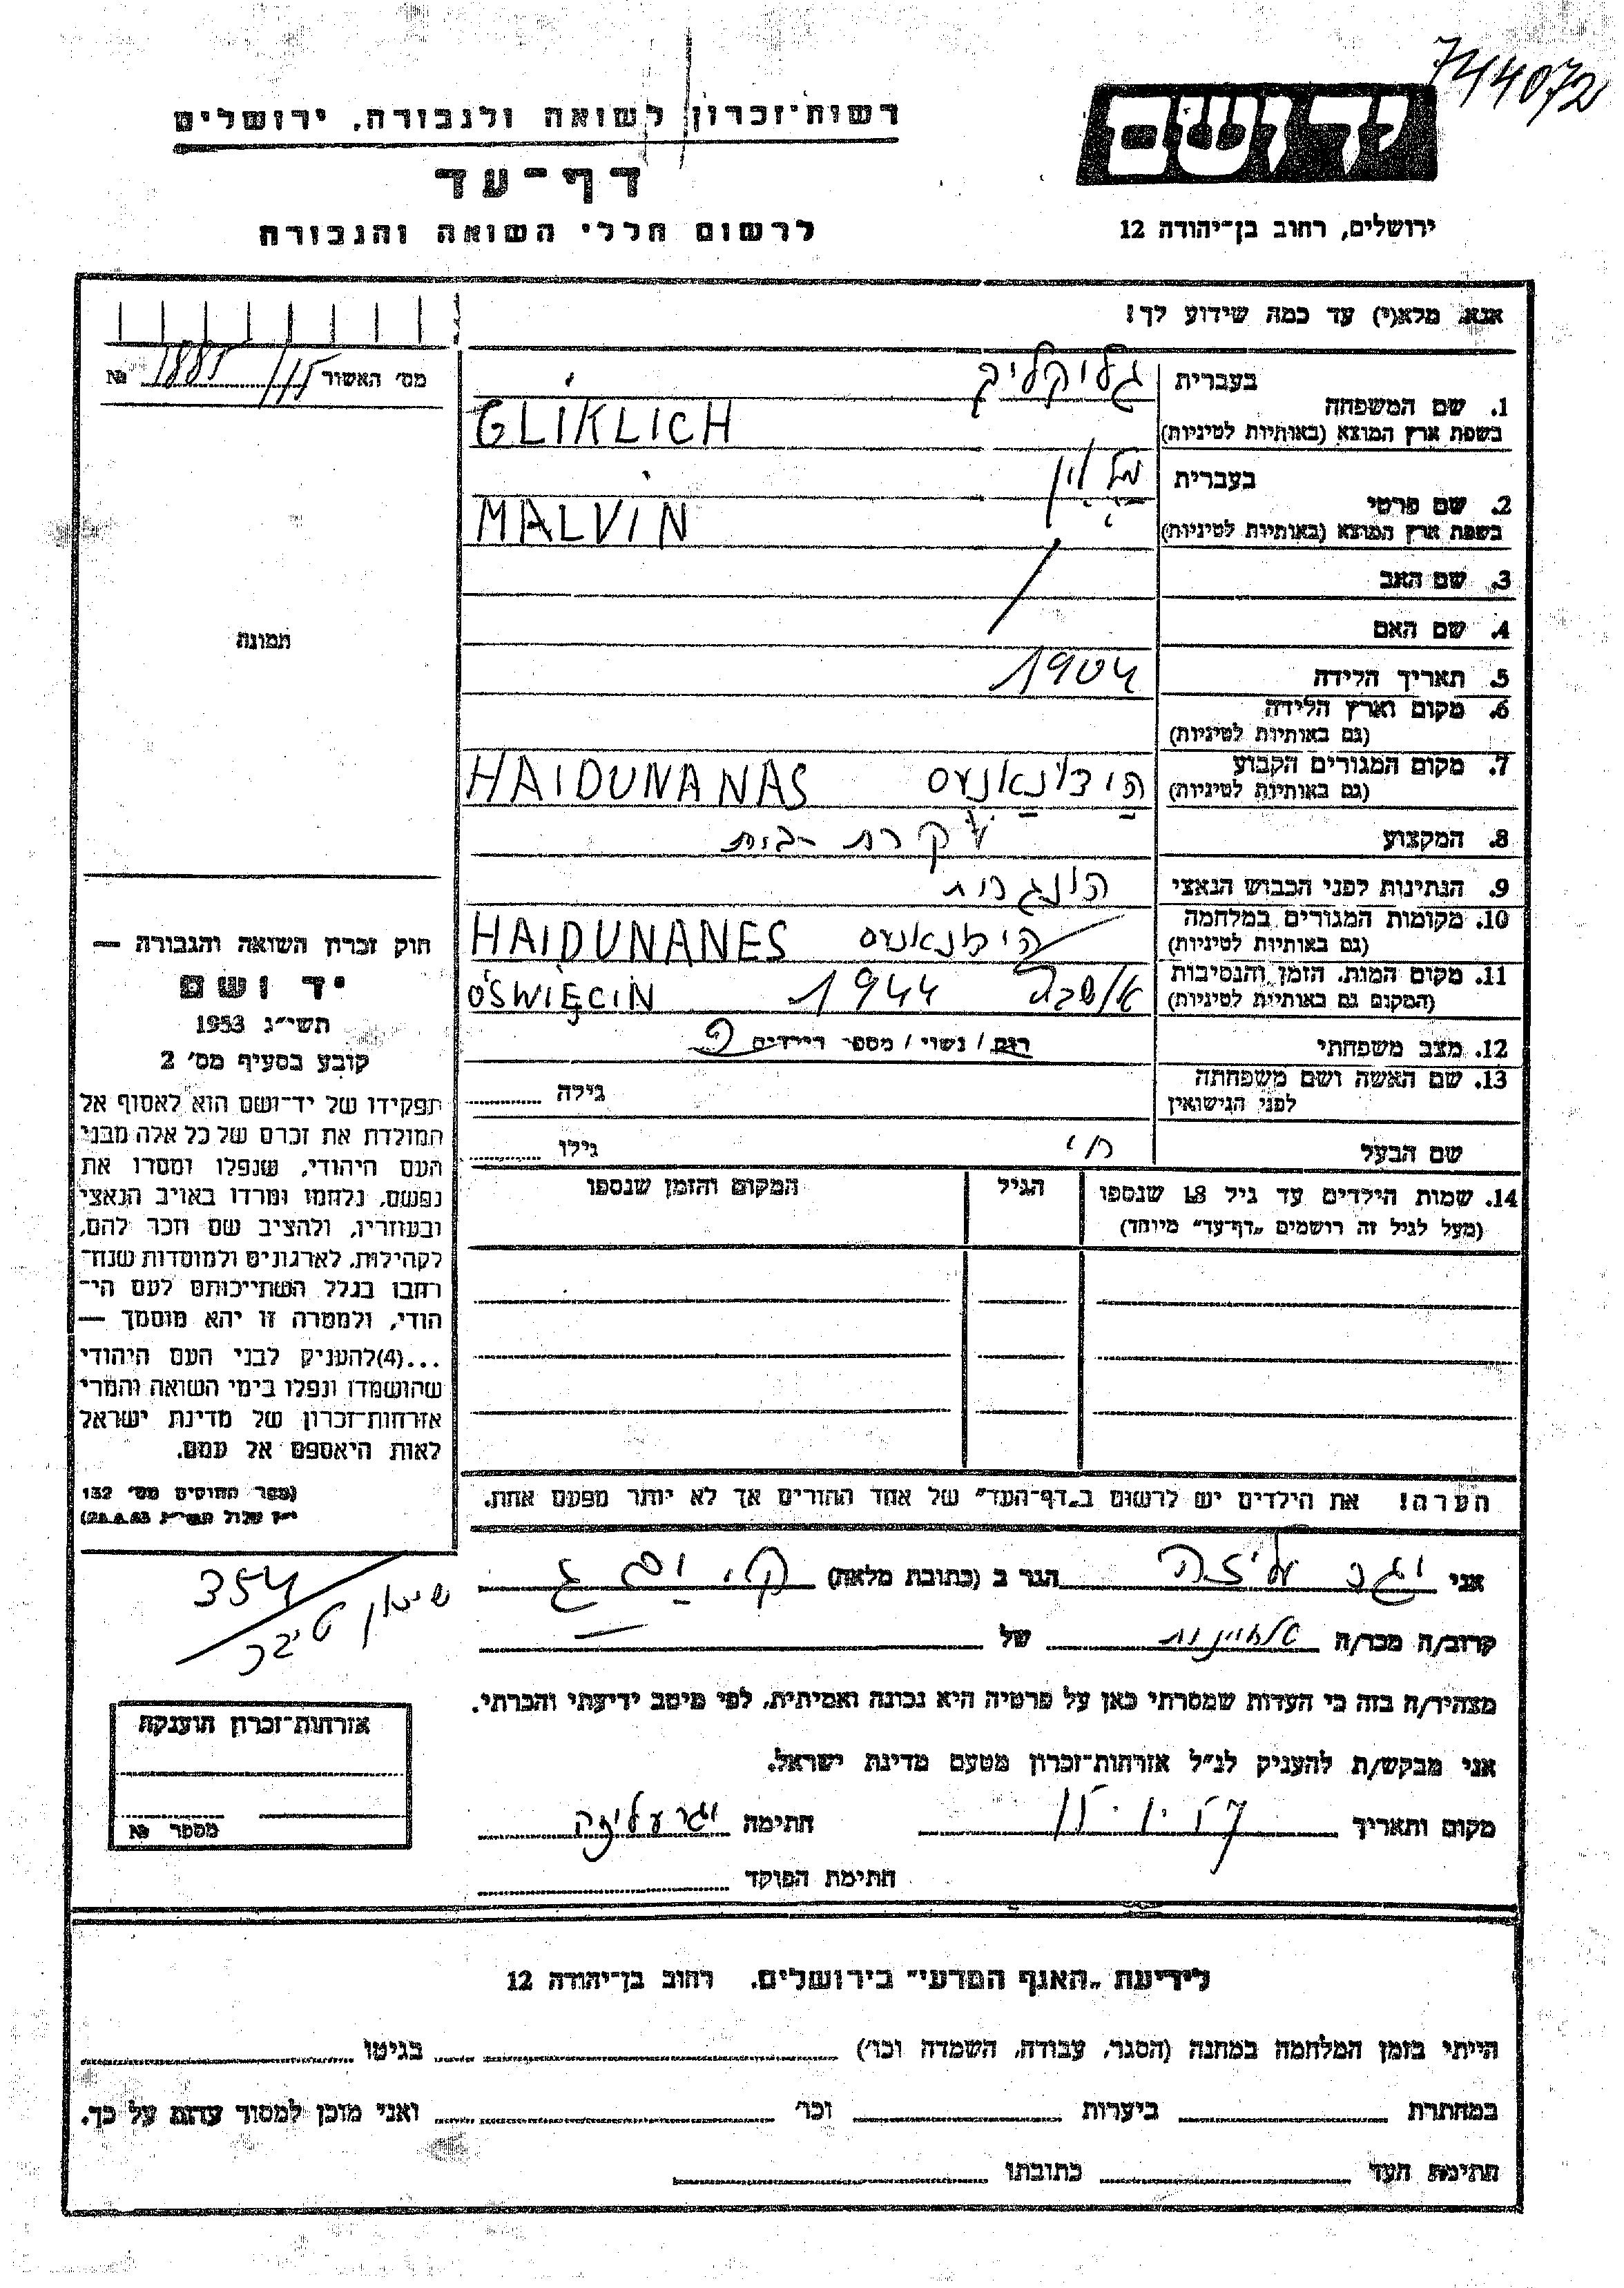 744072
יד ושם
רשות-זכרון לשואה ולגבורה, ירושלים
דף-עד
ירושלים, רחוב בן-יהודה 12
לרשום חללי השואה והגבורה
אנא, מלא(י) עד כמה שידוע לך!
מס' האשור 115/1885 №
בעברית גליקליך
1. שם המשפחה
בשפת ארץ המוצא (באותיות לטיניות) GLIKLICH
בעברית מלוין
2. שם פרטי
בשפת ארץ המוצא (באותיות לטיניות) MALVIN
3. שם האב
4. שם האם
תמונה
5. תאריך הלידה 1904
6. מקום וארץ הלידה
(גם באותיות לטיניות)
7. מקום המגורים הקבוע הידונאנעס HAIDUNANAS
(גם באותיות לטיניות)
8. המקצוע עקרת-בית
9. הנתינות לפני הכבוש הנאצי הונגרית
10. מקומות המגורים במלחמה הידונאנעס HAIDUNANES
(גם באותיות לטיניות)
11. מקום המות, הזמן והנסיבות 1944 OŚWIĘCIN
(המקום גם באותיות לטיניות)
12. מצב משפחתי רוק / נשוי / מספר הילדים
13. שם האשה ושם משפחתה גילה
לפני הנישואין
שם הבעל חי גילו
14. שמות הילדים עד גיל 18 שנספו הגיל המקום והזמן שנספו
(מעל לגיל זה רושמים „דף-עד" מיוחד)
חוק זכרון השואה והגבורה —
יד ושם
תשי"ג 1953
קובע בסעיף מס' 2
תפקידו של יד-ושם הוא לאסוף אל
המולדת את זכרם של כל אלה מבני
העם היהודי, שנפלו ומסרו את
נפשם, נלחמו ומרדו באויב הנאצי
ובעוזריו, ולהציב שם וזכר להם,
לקהילות, לארגונים ולמוסדות שנח-
רבו בגלל השתייכותם לעם הי-
הודי, ולמטרה זו יהא מוסמך —
...(4)להעניק לבני העם היהודי
שהושמדו ונפלו בימי השואה והמרי
אזרחות-זכרון של מדינת ישראל
לאות היאספם אל עמם.
(ספר החוקים מס' 132
הערה! את הילדים יש לרשום ב„דף-העד" של אחד ההורים אך לא יותר מפעם אחת.
אני יגר עליזה הגר ב (כתובת מלאה) ק. ים ג
קרוב/ה מכר/ה של —
354
מצהיר/ה בזה כי העדות שמסרתי כאן על פרטיה היא נכונה ואמיתית, לפי מיטב ידיעתי והכרתי.
אני מבקש/ת להעניק לנ"ל אזרחות-זכרון מטעם מדינת ישראל.
מקום ותאריך חתימה יגר עליזה
חתימת הפוקד
אזרחות-זכרון הוענקה
מספר №
לידיעת „האגף המדעי" בירושלים. רחוב בן-יהודה 12
הייתי בזמן המלחמה במחנה (הסגר, עבודה, השמדה וכו') בגיטו
במחתרת ביערות וכו' ואני מוכן למסור עדות על כך.
חתימת העד כתובתו